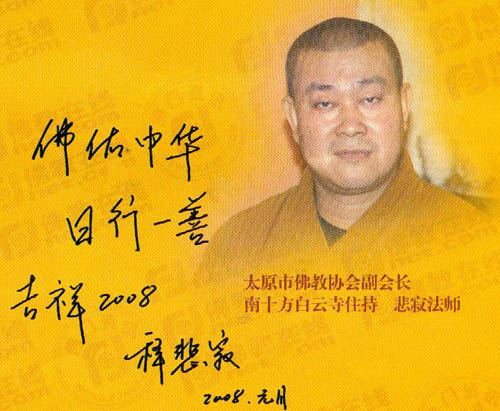 佛佑中华
日行一善
吉祥2008
释悲寂
2008.元月
太原市佛教协会副会长
南十方白云寺住持 悲寂法师